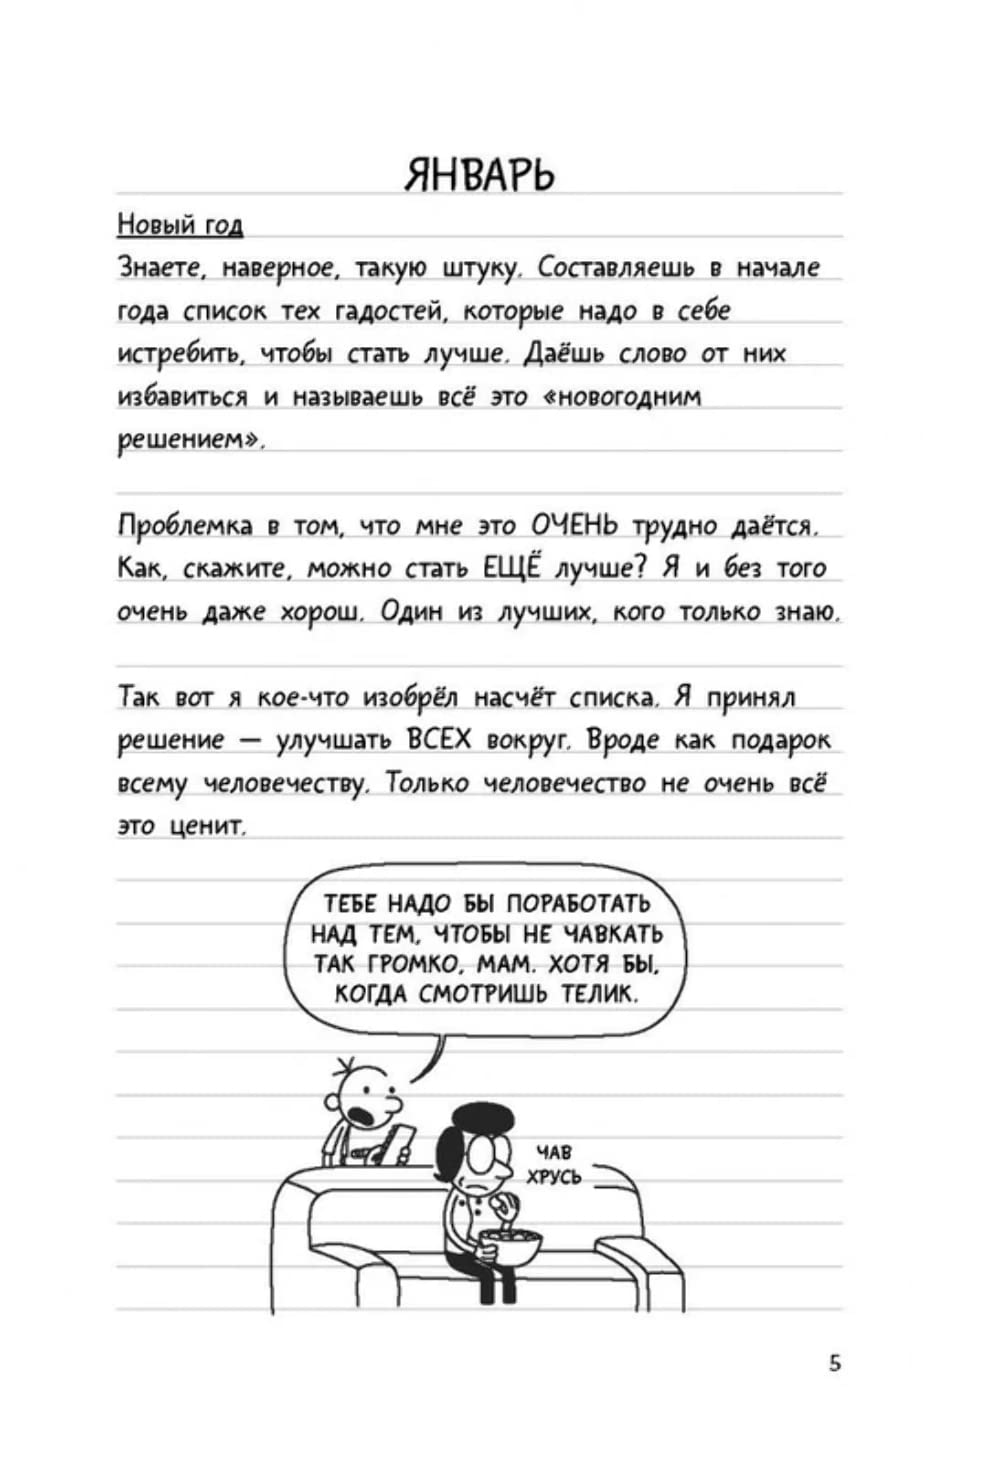 ЯНВАРЬ
Новый год
Знаете, наверное, такую штуку. Составляешь в начале
года список тех гадостей, которые надо в себе
истребить, чтобы стать лучше. Даёшь слово от них
избавиться и называешь всё это «новогодним
решением».
Проблемка в том, что мне это ОЧЕНЬ трудно даётся.
Как, скажите, можно стать ЕЩЁ лучше? Я и без того
очень даже хорош. Один из лучших, кого только знаю.
Так вот я кое-что изобрёл насчёт списка. Я принял
решение — улучшать ВСЕХ вокруг. Вроде как подарок
всему человечеству. Только человечество не очень всё
это ценит.
ТЕБЕ НАДО БЫ ПОРАБОТАТЬ
НАД ТЕМ, ЧТОБЫ НЕ ЧАВКАТЬ
ТАК ГРОМКО, МАМ. ХОТЯ БЫ,
КОГДА СМОТРИШЬ ТЕЛИК.
ЧАВ
ХРУСЬ
5